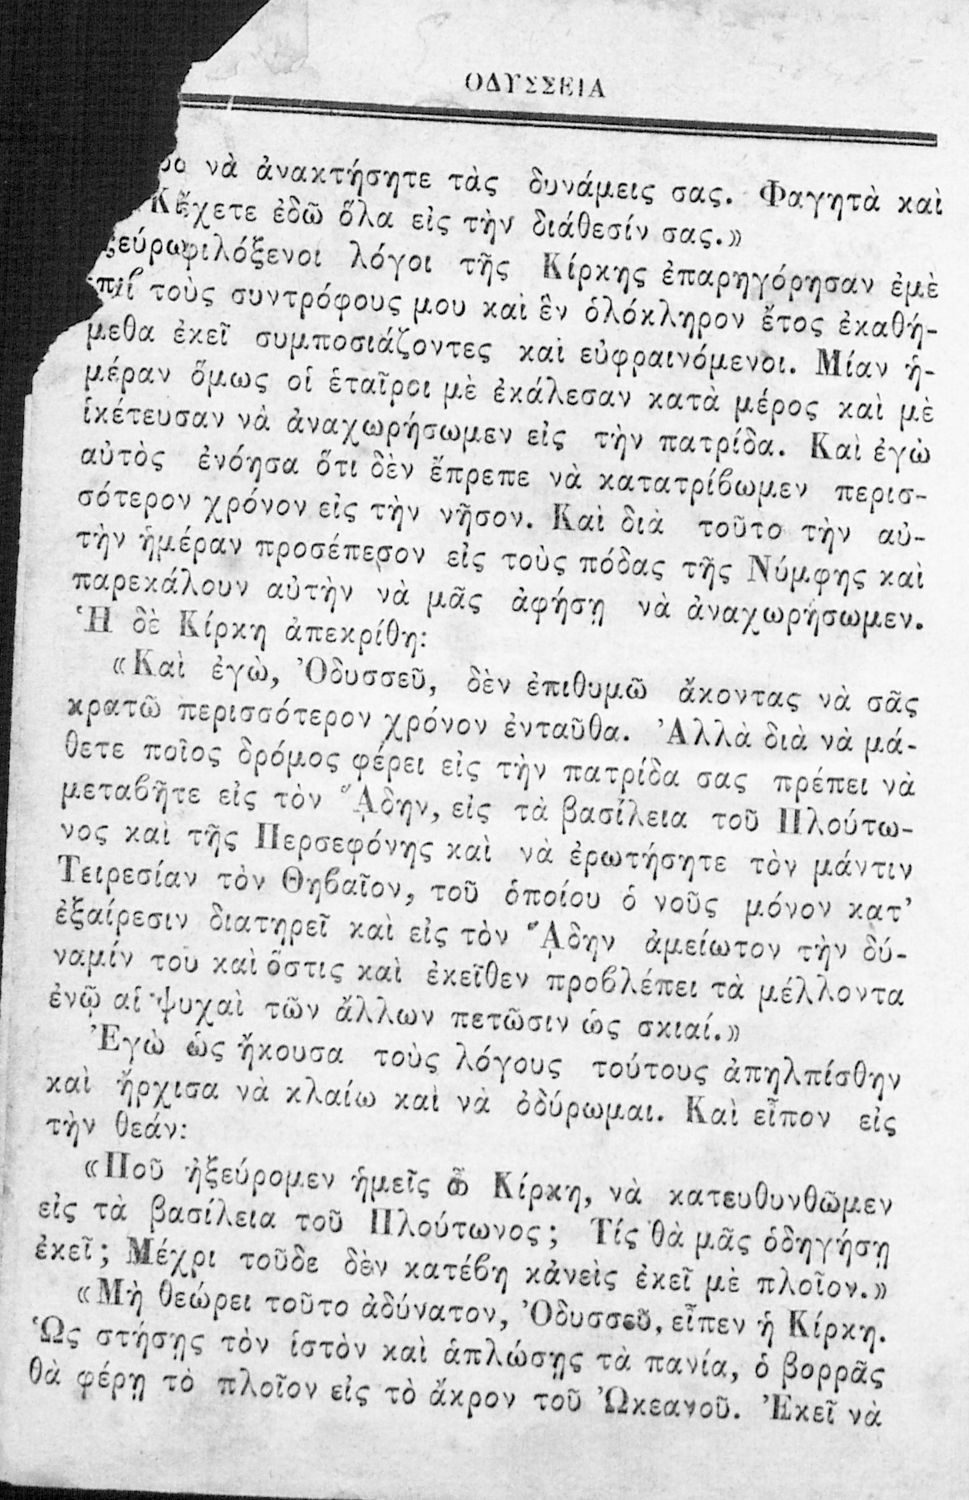 ΟΔΥΣΣΕΙΑ
νὰ ἀνακτήσητε τὰς δυνάμεις σας. Φαγητὰ καὶ
ἔχετε ἐδῶ ὅλα εἰς τὴν διάθεσίν σας.»
φιλόξενοι λόγοι τῆς Κίρκης ἐπαρηγόρησαν ἐμὲ
τοὺς συντρόφους μου καὶ ἓν ὁλόκληρον ἔτος ἐκαθή-
μεθα ἐκεῖ συμποσιάζοντες καὶ εὐφραινόμενοι. Μίαν ἡ-
μέραν ὅμως οἱ ἑταῖροι μὲ ἐκάλεσαν κατὰ μέρος καὶ μὲ
ἱκέτευσαν νὰ ἀναχωρήσωμεν εἰς τὴν πατρίδα. Καὶ ἐγὼ
αὐτὸς ἐνόησα ὅτι δὲν ἔπρεπε νὰ κατατρίβωμεν περισ-
σότερον χρόνον εἰς τὴν νῆσον. Καὶ διὰ τοῦτο τὴν αὐ-
τὴν ἡμέραν προσέπεσον εἰς τοὺς πόδας τῆς Νύμφης καὶ
παρεκάλουν αὐτὴν νὰ μᾶς ἀφήσῃ νὰ ἀναχωρήσωμεν.
Ἡ δὲ Κίρκη ἀπεκρίθη:
«Καὶ ἐγὼ, Ὀδυσσεῦ, δὲν ἐπιθυμῶ ἄκοντας νὰ σᾶς
κρατῶ περισσότερον χρόνον ἐνταῦθα. Ἀλλὰ διὰ νὰ μά-
θετε ποῖος δρόμος φέρει εἰς τὴν πατρίδα σας πρέπει νὰ
μεταβῆτε εἰς τὸν ᾍδην, εἰς τὰ βασίλεια τοῦ Πλούτω-
νος καὶ τῆς Περσεφόνης καὶ νὰ ἐρωτήσητε τὸν μάντιν
Τειρεσίαν τὸν Θηβαῖον, τοῦ ὁποίου ὁ νοῦς μόνον κατ'
ἐξαίρεσιν διατηρεῖ καὶ εἰς τὸν ᾍδην ἀμείωτον τὴν δύ-
ναμίν του καὶ ὅστις καὶ ἐκεῖθεν προβλέπει τὰ μέλλοντα
ἐνῷ αἱ ψυχαὶ τῶν ἄλλων πετῶσιν ὡς σκιαί.»
Ἐγὼ ὡς ἤκουσα τοὺς λόγους τούτους ἀπηλπίσθην
καὶ ἤρχισα νὰ κλαίω καὶ νὰ ὀδύρωμαι. Καὶ εἶπον εἰς
τὴν θεάν:
«Ποῦ ἠξεύρομεν ἡμεῖς ὦ Κίρκη, νὰ κατευθυνθῶμεν
εἰς τὰ βασίλεια τοῦ Πλούτωνος; Τίς θὰ μᾶς ὁδηγήσῃ
ἐκεῖ; Μέχρι τοῦδε δὲν κατέβη κἀνεὶς ἐκεῖ μὲ πλοῖον.»
«Μὴ θεώρει τοῦτο ἀδύνατον, Ὀδυσσεῦ, εἶπεν ἡ Κίρκη.
Ὡς στήσῃς τὸν ἱστὸν καὶ ἁπλώσῃς τὰ πανία, ὁ βορρᾶς
θὰ φέρῃ τὸ πλοῖον εἰς τὸ ἄκρον τοῦ Ὠκεανοῦ. Ἐκεῖ νὰ